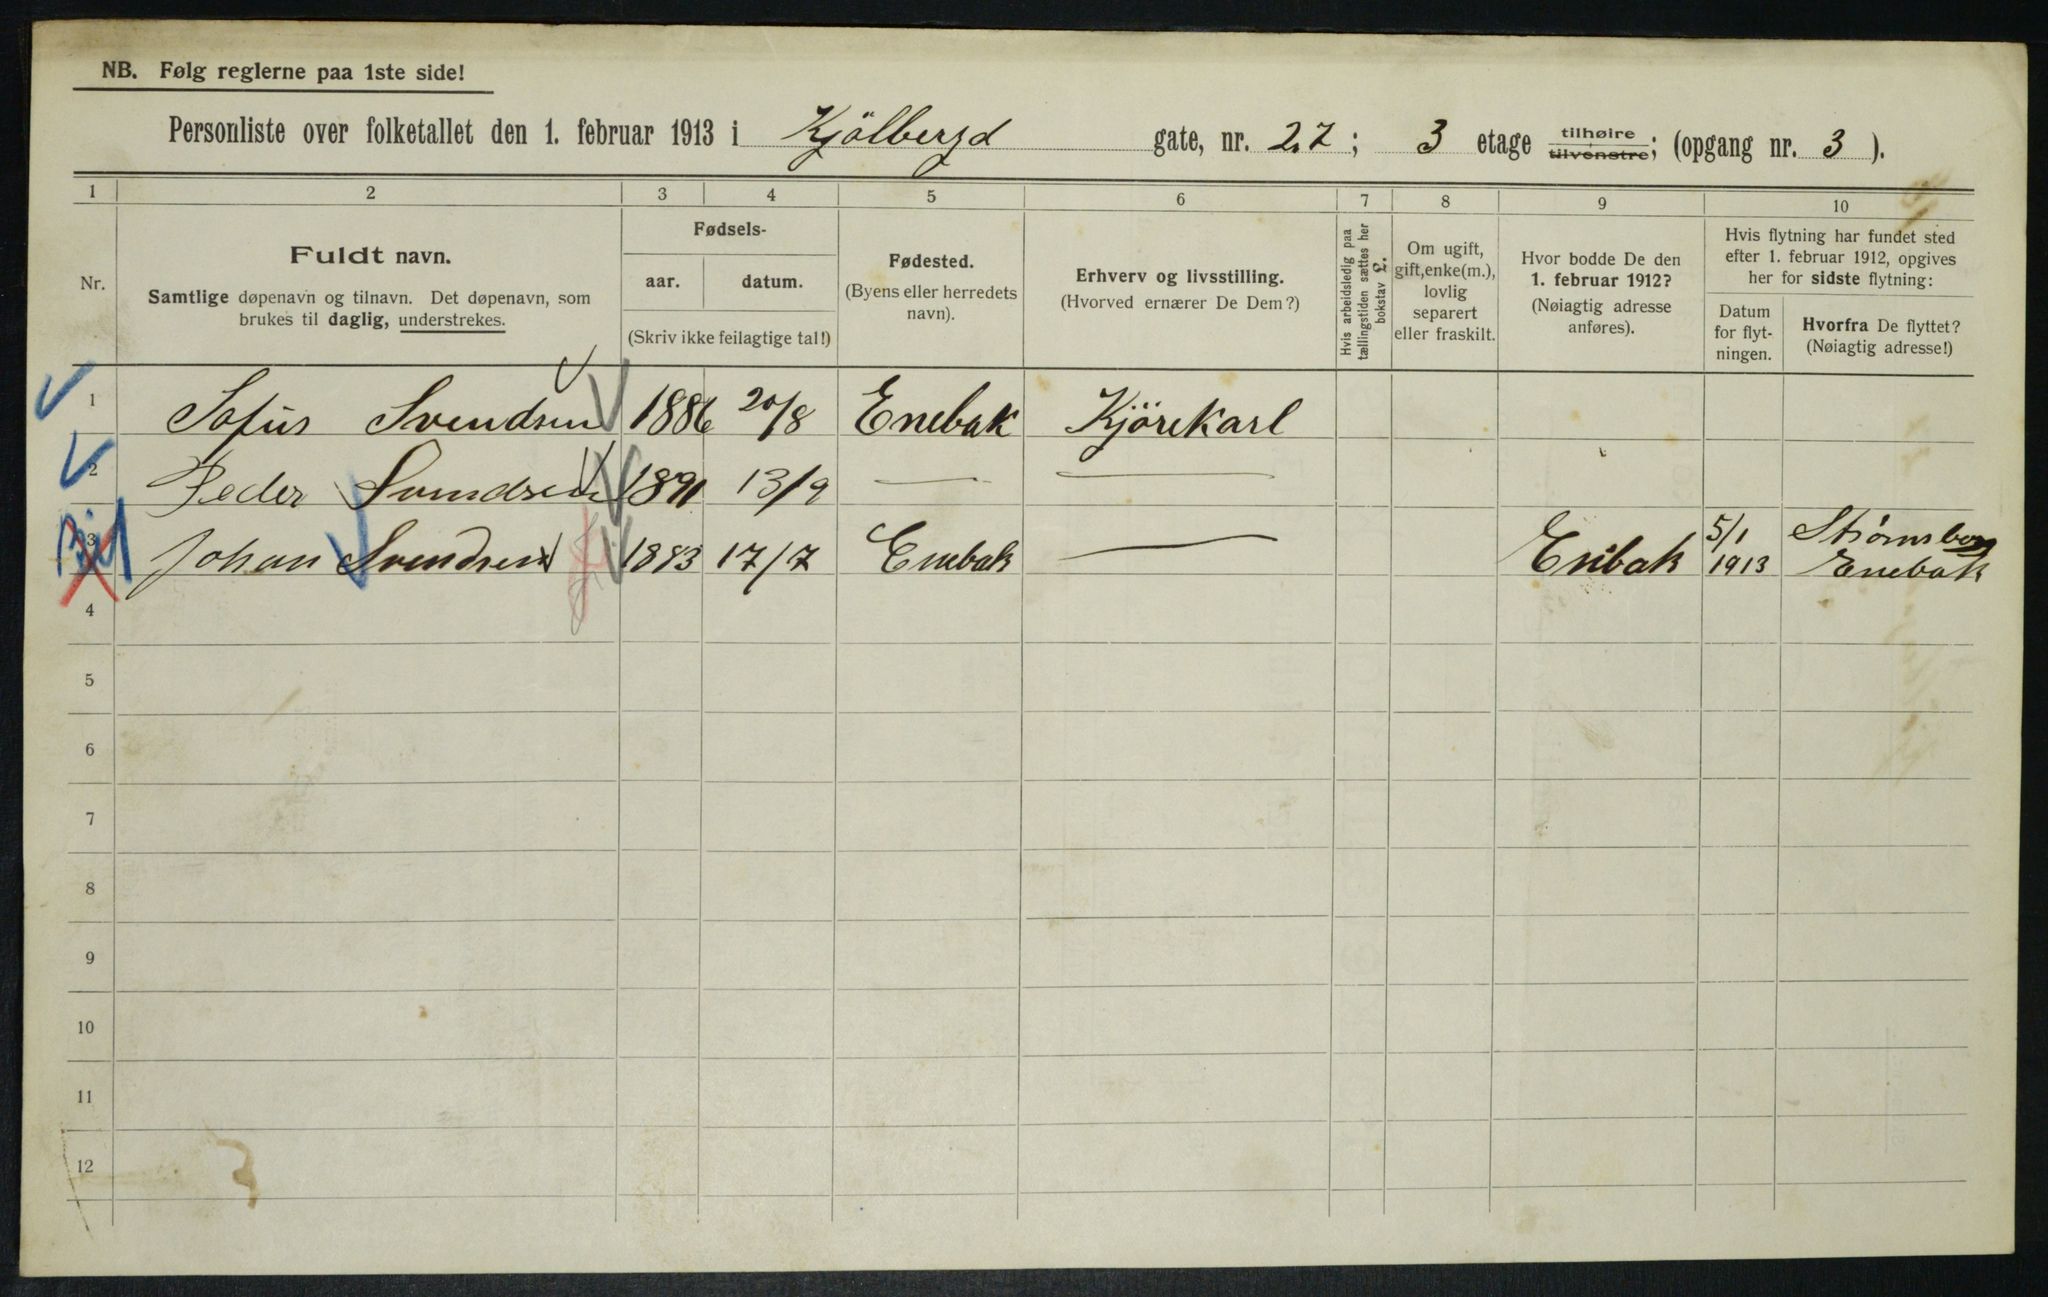 NB. Følg reglerne paa 1ste side!
Personliste over folketallet den 1. februar 1913 i Kjölbergd gate, nr. 27; 3 etage tilhøire tilvenstre; (opgang nr. 3 ).
1 2 3 4 5 6 7 8 9 10
Nr.
Fuldt navn.
Samtlige døpenavn og tilnavn. Det døpenavn, som
brukes til daglig, understrekes.
Fødsels-
aar. datum.
(Skriv ikke feilagtige tal!)
Fødested.
(Byens eller herredets
navn).
Erhverv og livsstilling.
(Hvorved ernærer De Dem?)
Hvis arbeidsledig paa
tællingstiden sættes her
bokstav L.
Om ugift,
gift, enke(m.),
lovlig
separert
eller fraskilt.
Hvor bodde De den
1. februar 1912?
(Nøiagtig adresse
anføres).
Hvis flytning har fundet sted
efter 1. februar 1912, opgives
her for sidste flytning:
Datum
for flyt-
ningen.
Hvorfra De flyttet?
(Nøiagtig adresse!)
1 Sofus Svendsen 1886 20/8 Enebak Kjörekarl
2 Peder Svendsen 1891 13/9 — —
3 Johan Svendsen 1883 17/7 Enebak — Enebak 5/1 1913 Strømsborg Enebak
4
5
6
7
8
9
10
11
12